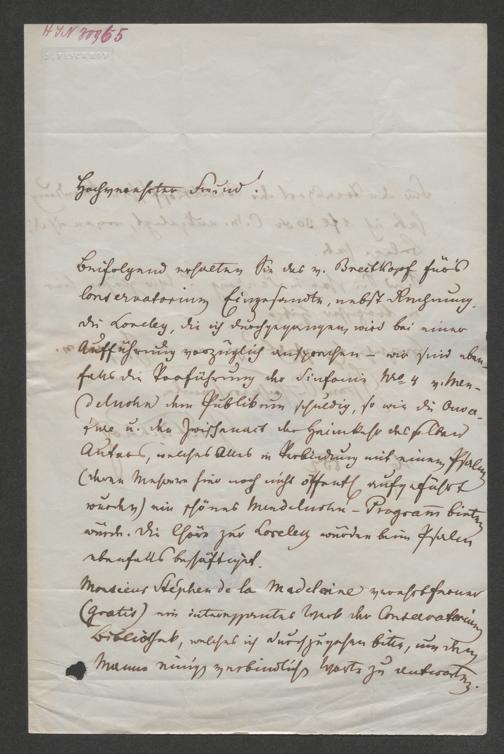 HIN 30965
Hochverehrter Freund!
Beifolgend erhalten Sie das v. Breitkopf für's
Conservatorium Eingesandte, nebst Rechnung.
Die Loreley, die ich durchgegangen, wird bei einer
Aufführung vorzüglich ansprechen – wir sind eben-
falls die Vorführung der Sinfonie No 4 v. Men-
delssohn dem Publikum schuldig, so wie die Ouver-
ture u. den Zwischenact der Heimkehr desselben
Autors, welches Alles in Verbindung mit einem Psalm
(deren Mehrere hier noch nicht öffentl. aufgeführt
wurden) ein schönes Mendelssohn-Programm bieten
würde. Die Chöre zur Loreley würden beim Psalm
ebenfalls beschäftigt.
Monsieur Stéphen de la Madelaine verehrt ferner
(gratis) ein interessantes Werk der Conservatorium
Bibliothek, welches ich durchzusehen bitte, um dem
Manne einige verbindliche Worte zu antworten.